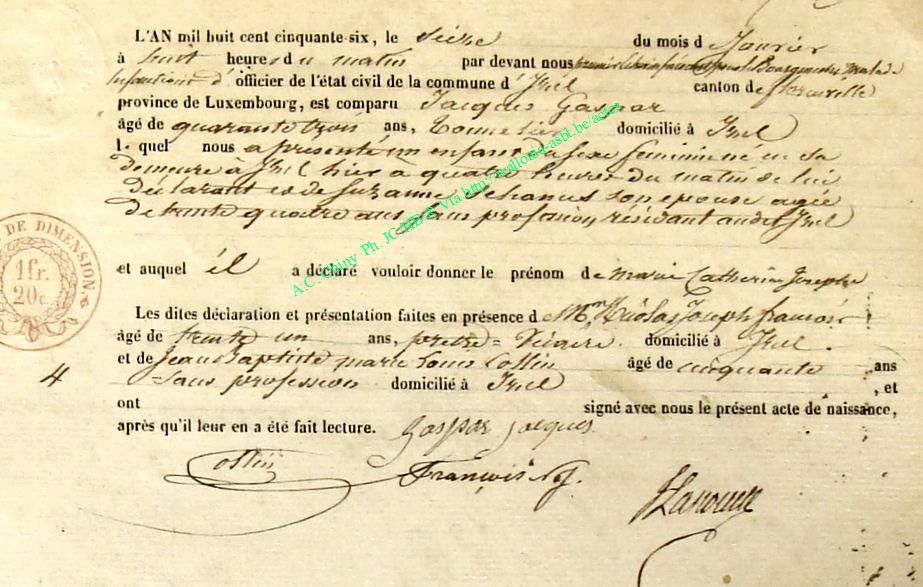 L'AN mil huit cent cinquante-six, le Seize du mois d Janvier
à huit heures du matin par devant nous Bourgmestre malade
officier de l'état civil de la commune d' Izel canton de florenville
province de Luxembourg, est comparu Jacques Gaspar
âgé de quarante trois ans, Tonnelier domicilié à Izel
lequel nous a présenté un enfant du sexe feminin né en sa
demeure à Izel hier à quatre heures du matin de lui
déclarant et de Suzanne son epouse agée
de trente quatre ans, sans profession, résidant audit Izel
et auquel il a déclaré vouloir donner le prénom de marie Catherine Josephe
Les dites déclaration et présentation faites en présence d Mr. Nicolas Joseph francois
âgé de trente un ans, pretre = Vicaire domicilié à Izel
et de Jean Baptiste marie Louis Collin âgé de cinquante ans
4 = Sans profession domicilié à Izel , et
ont signé avec nous le présent acte de naissance,
après qu'il leur en a été fait lecture. Gaspar Jacques
Collin François
DE DIMENSION
1 fr.
20 c.
A.C. Chiny Ph. JC MB & Via http://wallonia-asbl.be/actes